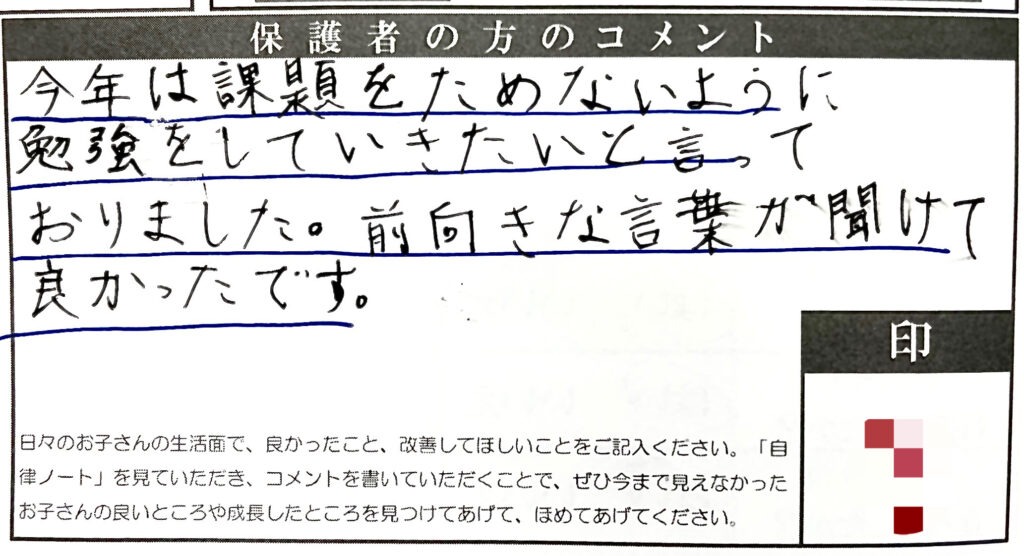 保護者の方のコメント
今年は課題をためないように
勉強をしていきたいと言って
おりました。前向きな言葉が聞けて
良かったです。
印
日々のお子さんの生活面で、良かったこと、改善してほしいことをご記入ください。「自
律ノート」を見ていただき、コメントを書いていただくことで、ぜひ今まで見えなかった
お子さんの良いところや成長したところを見つけてあげて、ほめてあげてください。